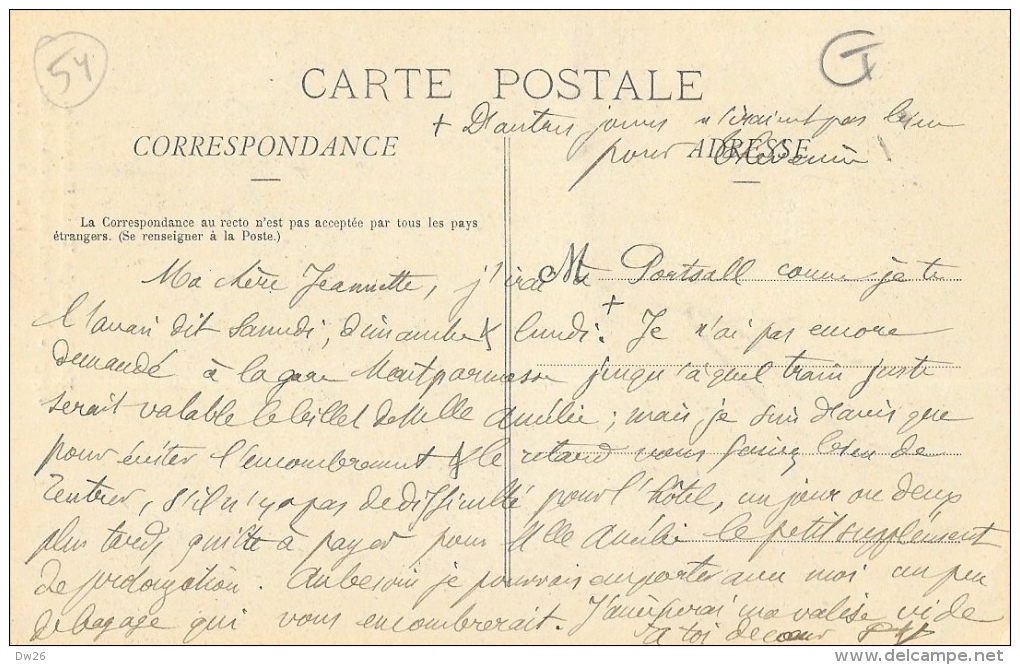 54
G
CARTE POSTALE
+ D'autres jours n'iraient pas bien
CORRESPONDANCE
pour ADRESSE
La Correspondance au recto n'est pas acceptée par tous les pays
étrangers. (Se renseigner à la Poste.)
Ma chère Jeannette, j'irai à Portsall comme je te
l'avais dit samedi, dimanche & lundi. + Je n'ai pas encore
demandé à la gare Montparnasse jusqu'à quel train juste
serait valable le billet de Mlle Amélie ; mais je suis d'avis que
pour éviter l'encombrement & le retard vous feriez bien de
rentrer, s'il n'y a pas de difficulté pour l'hôtel, un jour ou deux
plus tard, quitte à payer pour Mlle Amélie le petit supplément
de prolongation. Au besoin je pourrais emporter avec moi un peu
de bagage qui vous encombrerait. J'amènerai ma valise vide
à toi de cœur
Dw26
www.delcampe.net